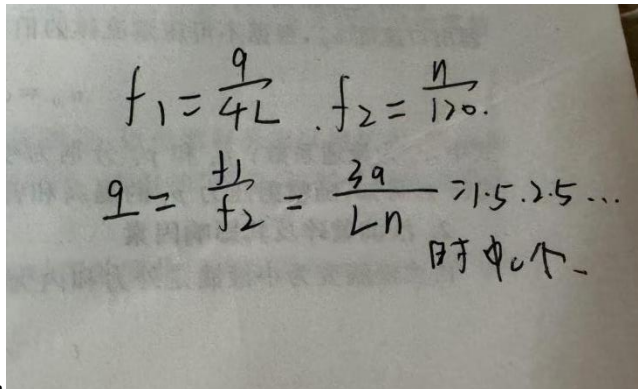 f₁ = a/4L . f₂ = n/120.
q = f₁/f₂ = 3a/Ln = 1.5.2.5...
时 φc